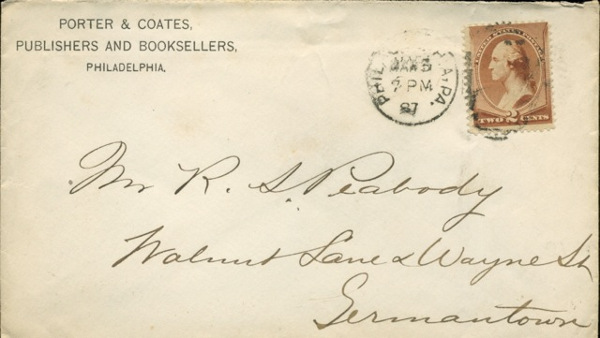 PORTER & COATES,
PUBLISHERS AND BOOKSELLERS,
PHILADELPHIA.
PHIL A, PA.
7 PM
87
UNITED STATES POSTAGE
TWO 2 CENTS
Mr R. S. Peabody
Walnut Lane & Wayne St
Germantown